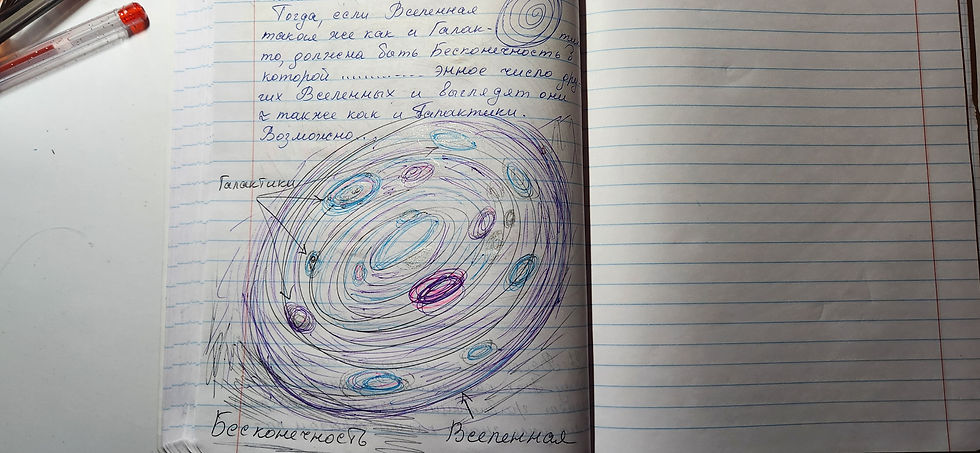 Тогда, если Вселенная
такая же как и Галак- тика
то, должна быть Бесконечность в
которой ............. энное число дру-
гих Вселенных и выглядят они
≈ также как и Галактики.
Возможно...
Галактики
Бесконечность
Вселенная